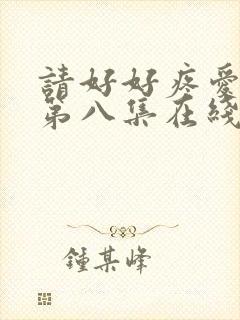 請好好疼愛
第八集在綫
鍾某峰